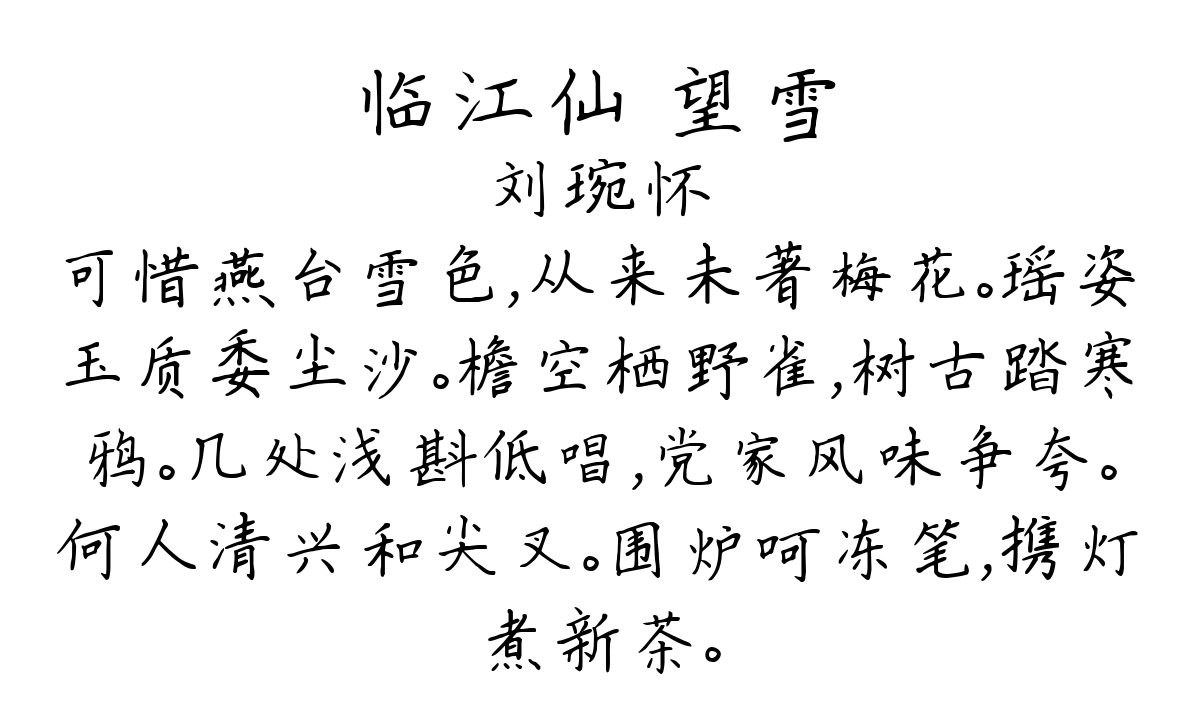 临江仙 望雪
刘琬怀
可惜燕台雪色,从来未著梅花。瑶姿
玉质委尘沙。檐空栖野雀,树古踏寒
鸦。几处浅斟低唱,党家风味争夸。
何人清兴和尖叉。围炉呵冻笔,携灯
煮新茶。